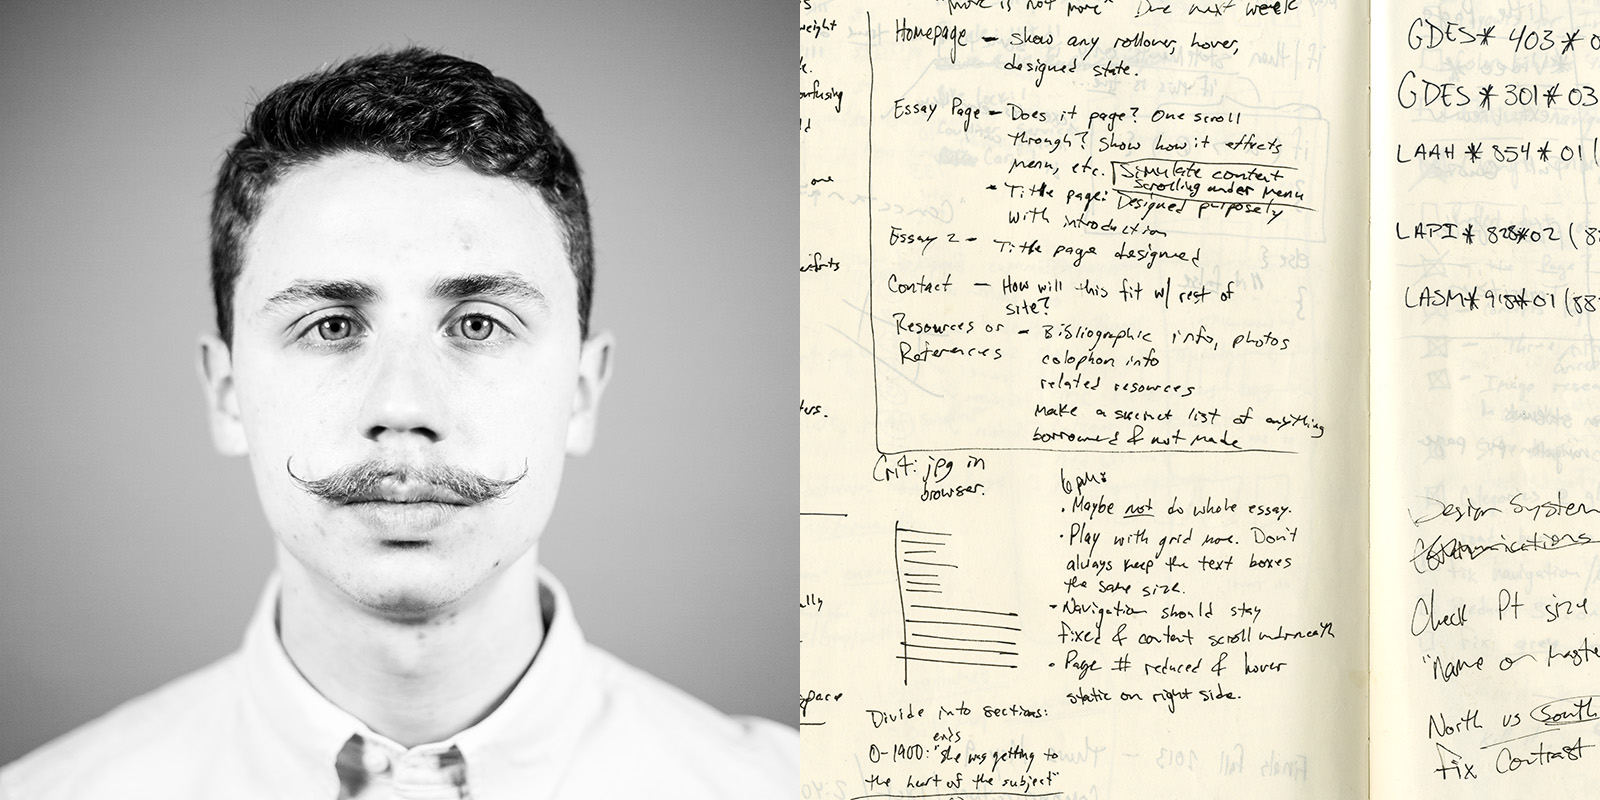 "more is not more" Due next week
Homepage - Show any rollover, hover,
designed state.
Essay Page - Does it page? One scroll
through? Show how it effects
menu, etc. Simulate content
scrolling under menu
- Title page: Designed purposely
with introduction
Essay 2 - Title page designed
Contact - How will this fit w/ rest of
site?
Resources or - Bibliographic info, photos
References colophon info
related resources
make a succinct list of anything
borrowed & not made
Crit: jpg in
browser.
6pm:
· Maybe not do whole essay.
· Play with grid more. Don't
always keep the text boxes
the same size.
- Navigation should stay
fixed & content scroll underneath
· Page # reduced & hover
static on right side.
Divide into sections:
ends
0-1900: "she was getting to
the hurt of the subject"
weight
confusing
one
efforts
ters.
ally
space
GDES* 403*0
GDES*301*03
LAAH*854*01(
LAPI*828*02(8
LASM*918*01(88
Design System
Communications
Check Pt size
"Name on
North vs South
fix Contrast